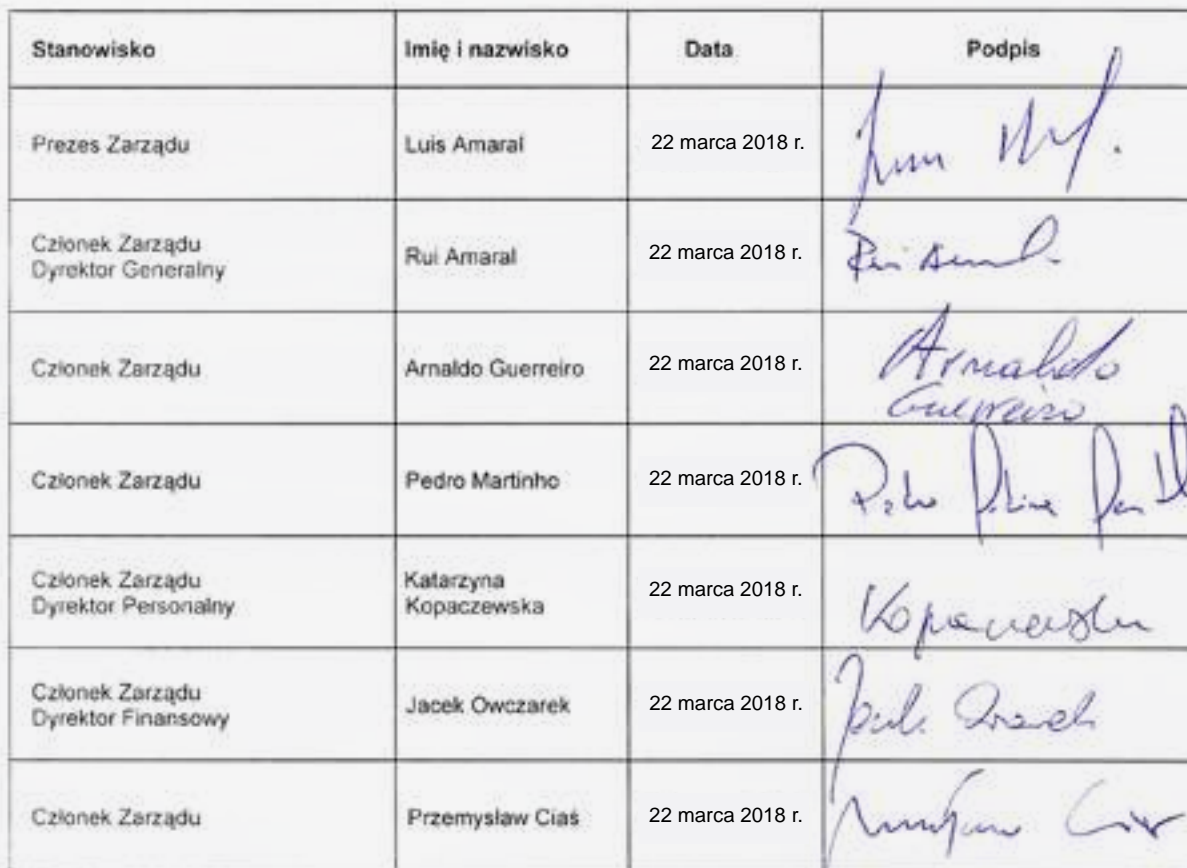 Stanowisko Imię i nazwisko Data Podpis
Prezes Zarządu Luis Amaral 22 marca 2018 r.
Członek Zarządu
Dyrektor Generalny Rui Amaral 22 marca 2018 r.
Członek Zarządu Arnaldo Guerreiro 22 marca 2018 r. Arnaldo
Guerreiro
Członek Zarządu Pedro Martinho 22 marca 2018 r.
Członek Zarządu
Dyrektor Personalny Katarzyna
Kopaczewska 22 marca 2018 r.
Członek Zarządu
Dyrektor Finansowy Jacek Owczarek 22 marca 2018 r.
Członek Zarządu Przemysław Ciaś 22 marca 2018 r.